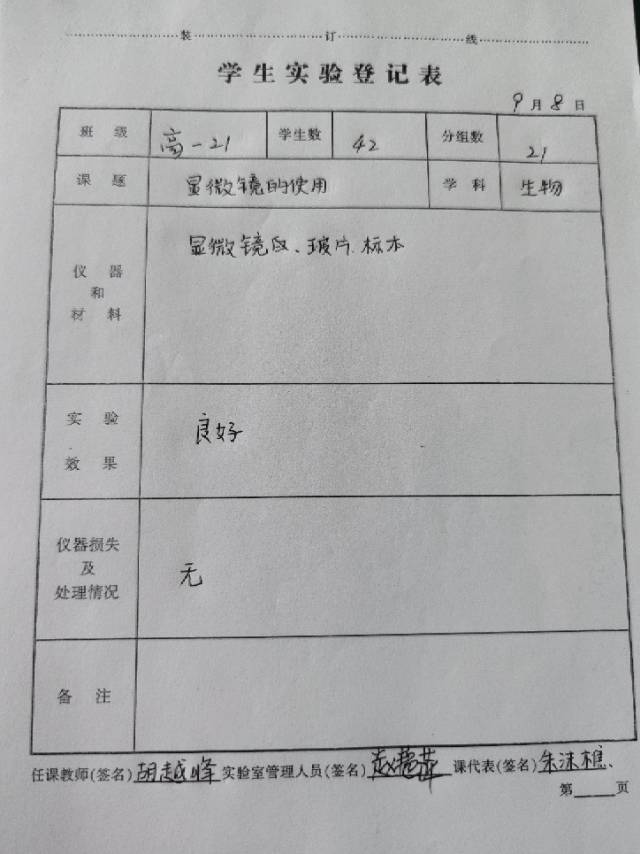 装 订 线
学生实验登记表
9月8日
班级 高一21 学生数 42 分组数 21
课题 显微镜的使用 学科 生物
仪器和材料 显微镜、玻片.标本
实验效果 良好
仪器损失及处理情况 无
备注
任课教师(签名)胡越峰 实验室管理人员(签名) 课代表(签名)朱沫樵、
第____页